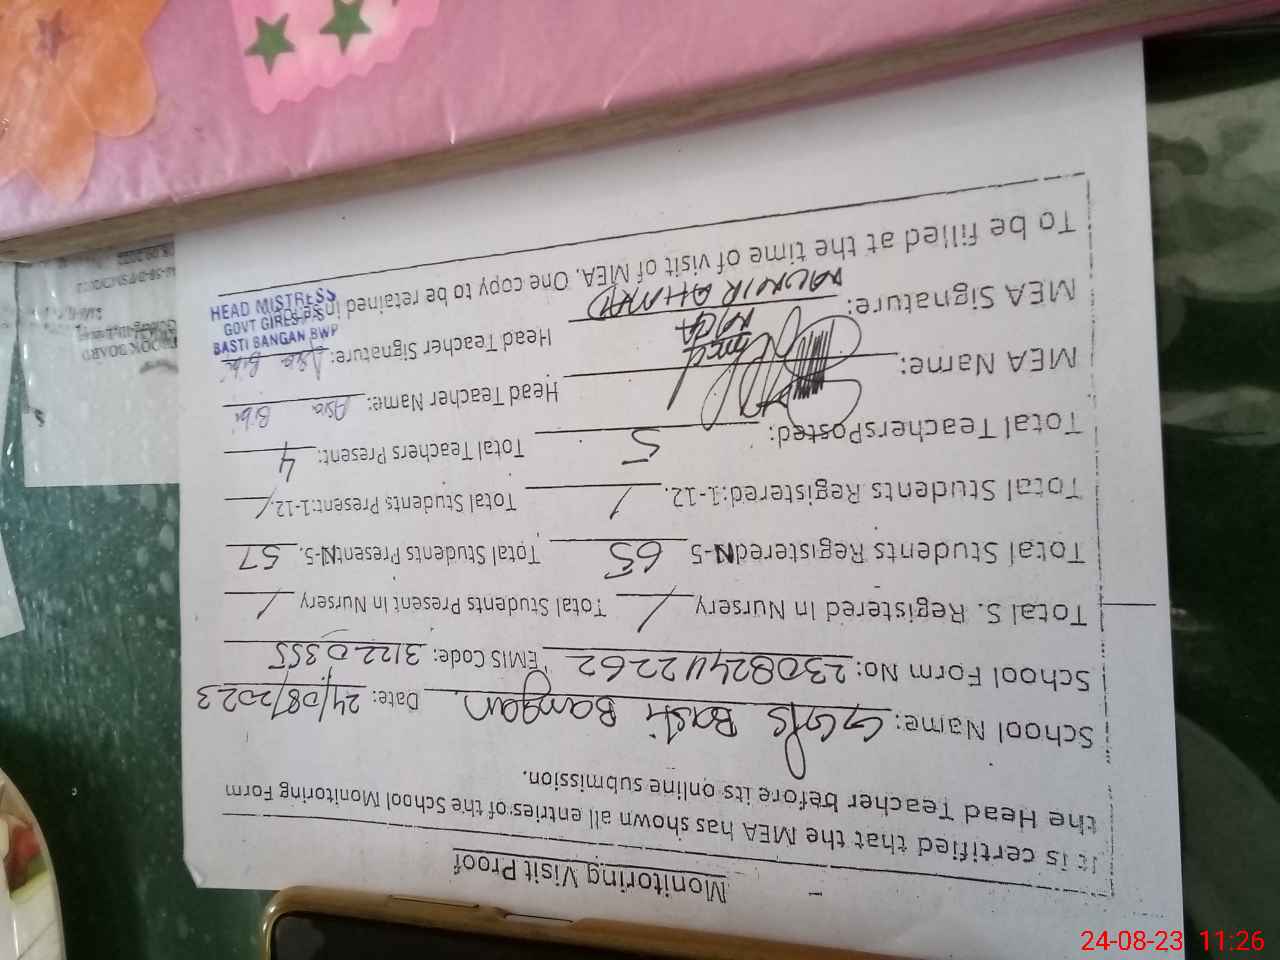 Monitoring Visit Proof
It is certified that the MEA has shown all entries of the School Monitoring Form
the Head Teacher before its online submission.
School Name: GGPS Basti Bangan. Date: 24/08/2023
School Form No: 230824U2262 EMIS Code: 31220355
Total S. Registered In Nursery / Total Students Present In Nursery /
Total Students RegisteredN-5 65 Total Students PresentN-5. 57
Total Students Registered:1-12. / Total Students Present:1-12. /
Total TeachersPosted: 5 Total Teachers Present: 4
MEA Name: Head Teacher Name: Asia Bibi
MEA Signature: MUNIR AHMAD Head Teacher Signature: Asia Bibi
To be filled at the time of visit of MEA. One copy to be retained in
HEAD MISTRESS
GOVT GIRLS P/S
BASTI BANGAN BWP
BOOK BOARD
24-08-23 11:26